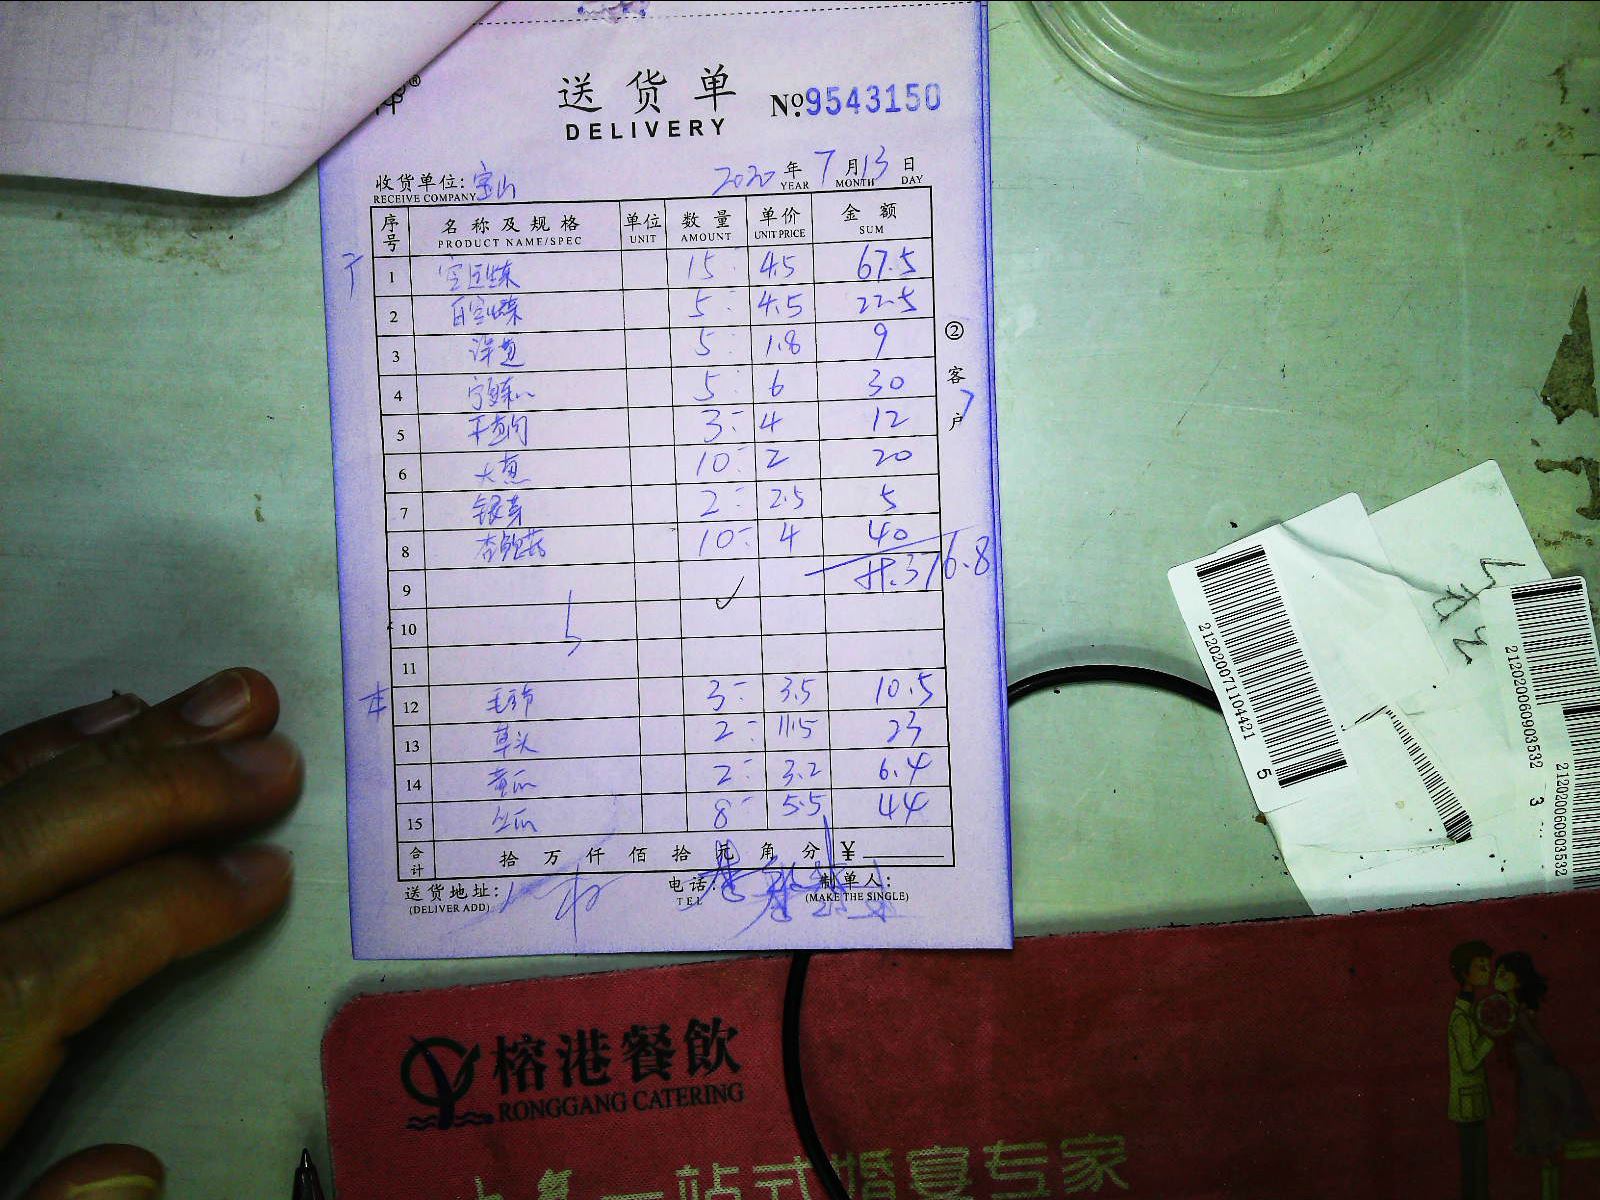 送货单
DELIVERY
№.9543150
收货单位: 宝山
RECEIVE COMPANY
2020年 7月13日
YEAR MONTH DAY
序号 名称及规格 单位 数量 单价 金额
PRODUCT NAME/SPEC UNIT AMOUNT UNIT PRICE SUM
1 15 4.5 67.5
2 5 4.5 22.5
3 洋葱 5 1.8 9
4 5 6 30
5 3 4 12
6 大葱 10 2 20
7 银芽 2 2.5 5
8 杏鲍菇 10 4 40
9 廾.316.8
10
11
12 3 3.5 10.5
13 草头 2 11.5 23
14 黄瓜 2 3.2 6.4
15 丝瓜 8 5.5 44
合计 拾 万 仟 佰 拾 元 角 分 ¥
送货地址: 电话: 制单人:
(DELIVER ADD) TEL (MAKE THE SINGLE)
② 客户
2120200711104421 5
2120200609903532 3
2120200609903532
榕港餐飲
RONGGANG CATERING
一站式婚宴专家